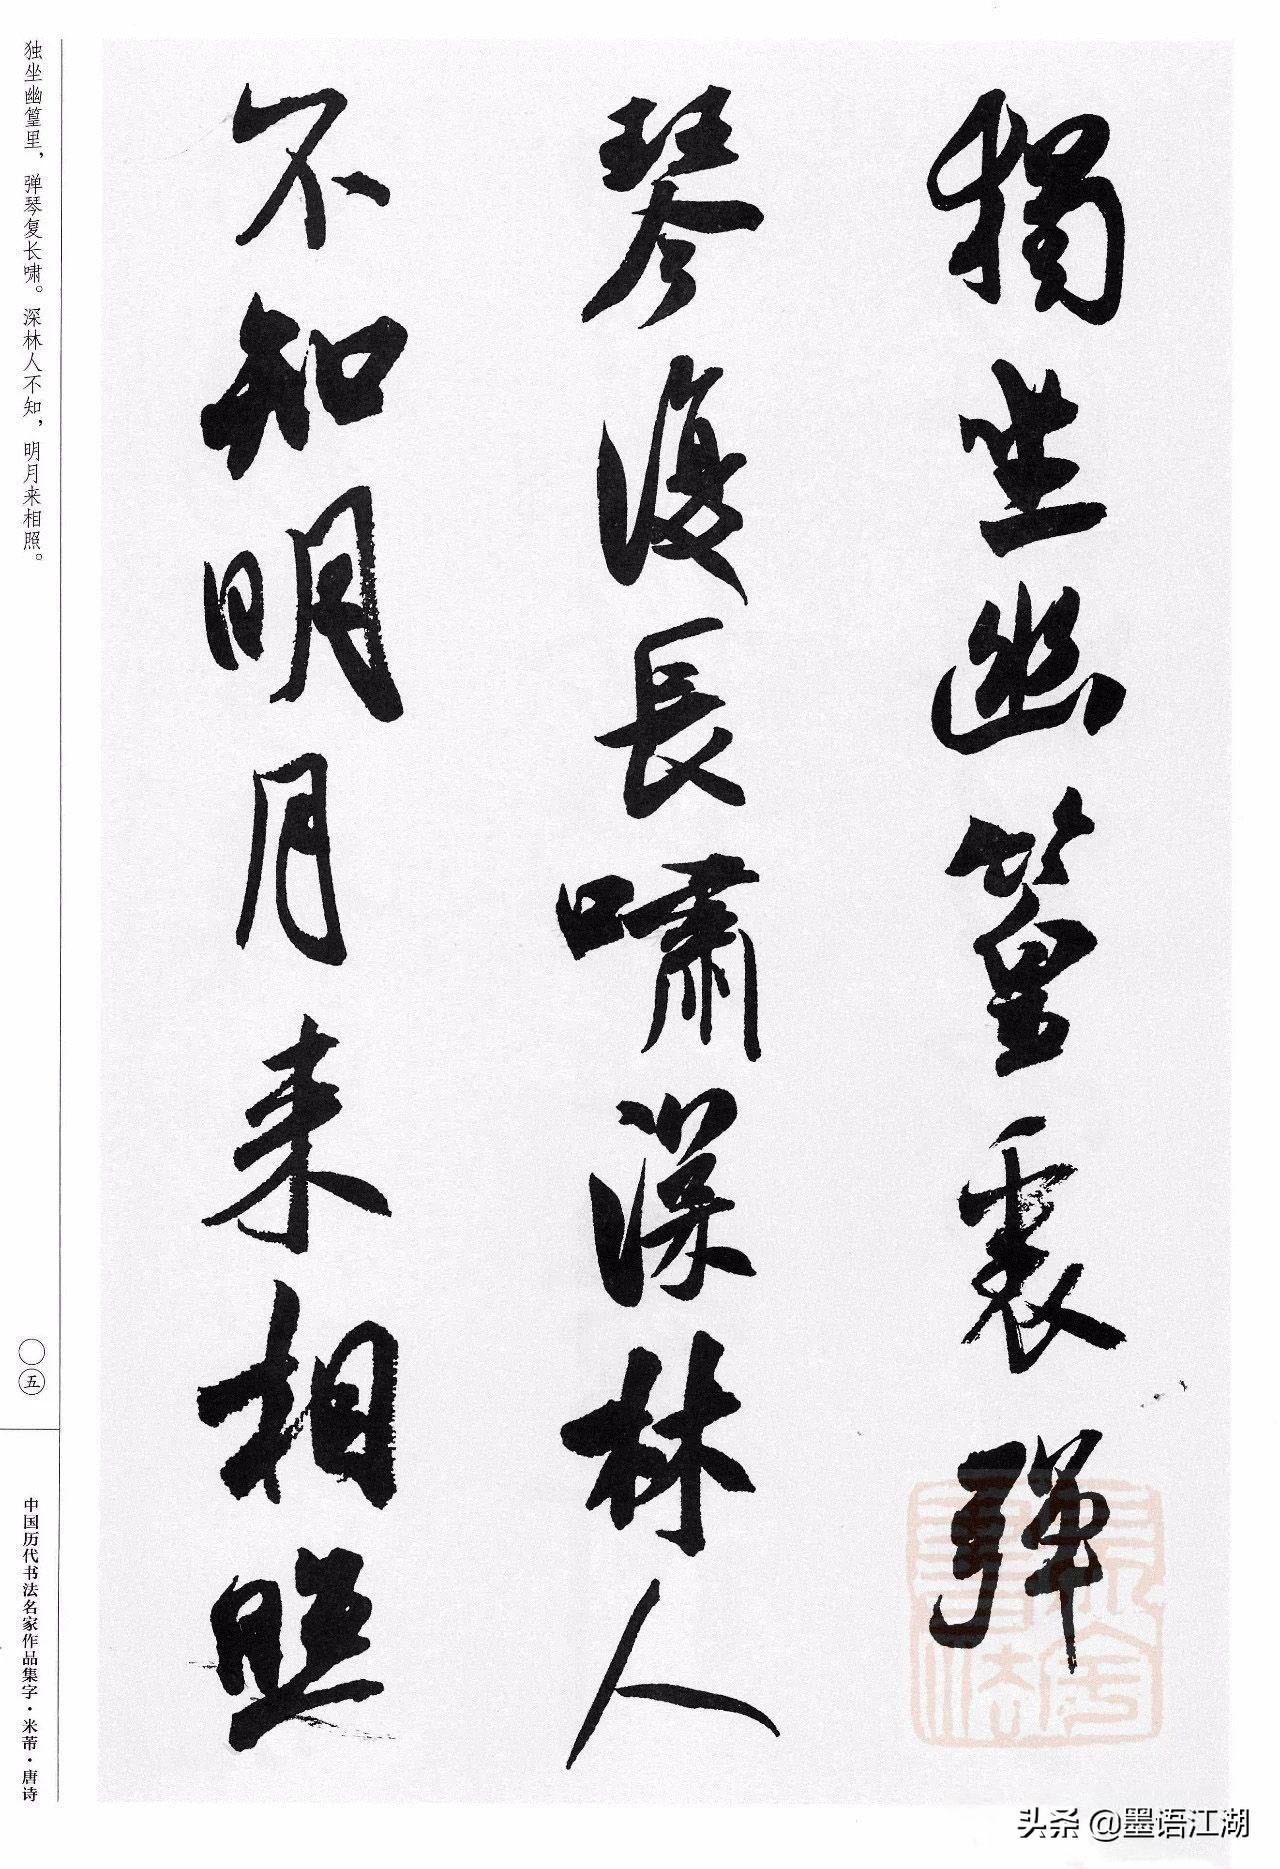 獨坐幽篁裏彈
琴復長嘯深林人
不知明月来相照
独坐幽篁里，弹琴复长啸。深林人不知，明月来相照。
〇五
中国历代书法名家作品集字·米芾·唐诗
头条 @墨语江湖